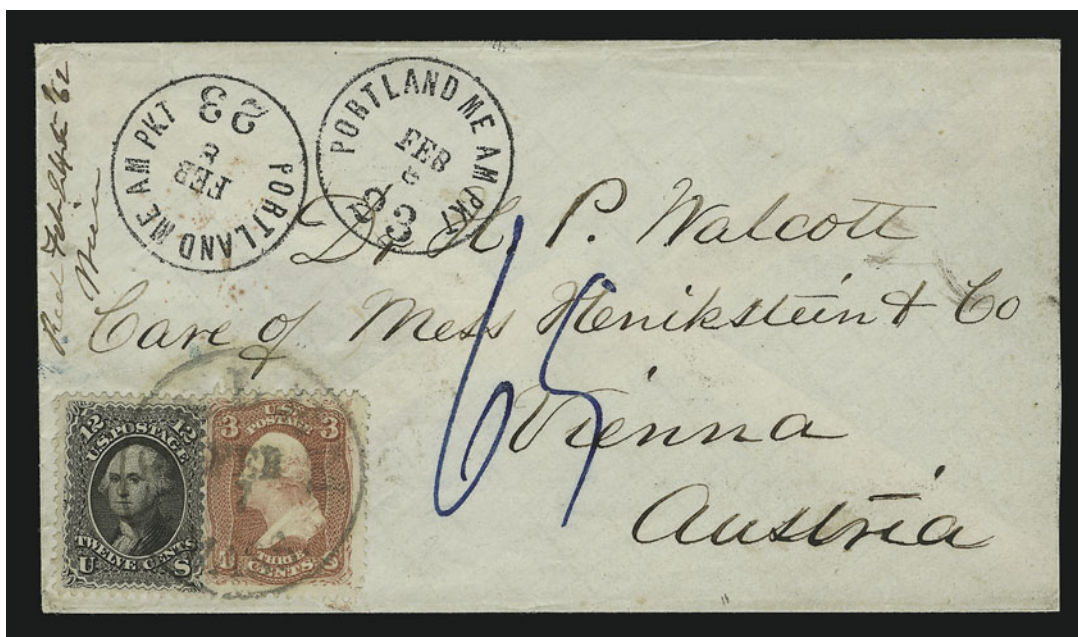 Recd Feb
PORTLAND ME AM PKT
FEB
8
23
PORTLAND ME AM PKT
FEB
8
23
Dr H. P. Walcott
Care of Mess Henikstein & Co
Vienna
Austria
12 12
U.S. POSTAGE
TWELVE CENTS
U S
3 3
U.S.
POSTAGE
THREE
CENTS